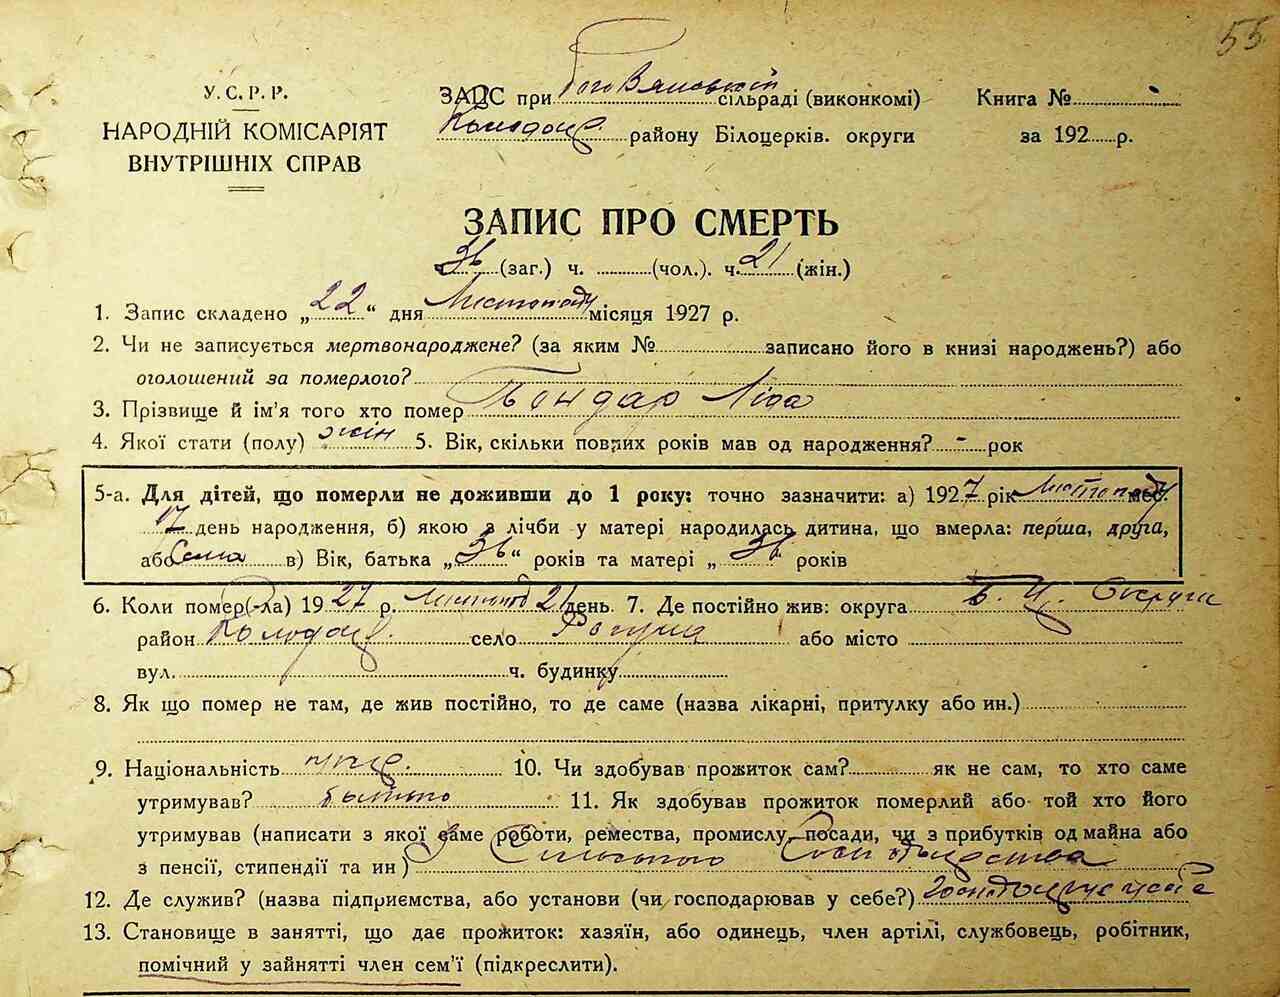 55
У.С.Р.Р.
НАРОДНІЙ КОМІСАРІЯТ
ВНУТРІШНІХ СПРАВ
ЗАПС при сільраді (виконкомі)
району Білоцерків. округи
Книга №
за 192 р.
ЗАПИС ПРО СМЕРТЬ
36 (заг.) ч. (чол.). ч. 21 (жін.)
1. Запис складено „22“ дня Листопаду місяця 1927 р.
2. Чи не записується мертвонароджене? (за яким № записано його в книзі народжень?) або
оголошений за померлого?
3. Прізвище й ім'я того хто помер Бондар Ліда
4. Якої стати (полу) жін 5. Вік, скільки повних років мав од народження? - рок
5-а. Для дітей, що померли не доживши до 1 року: точно зазначити: а) 1927 рік Листопаду міс.
17 день народження, б) якою з лічби у матері народилась дитина, що вмерла: перша, друга,
або Сема в) Вік, батька „36“ років та матері „36 років
6. Коли помер(-ла) 1927 р. Листопад 21 день. 7. Де постійно жив: округа Б. Ц. Округи
район село або місто
вул. ч. будинку
8. Як що помер не там, де жив постійно, то де саме (назва лікарні, притулку або ин.)
9. Національність укр. 10. Чи здобував прожиток сам? як не сам, то хто саме
утримував? батько 11. Як здобував прожиток померлий або той хто його
утримував (написати з якої саме роботи, ремества, промислу, посади, чи з прибутків од майна або
з пенсії, стипендії та ин) З Сільського Господарства
12. Де служив? (назва підприємства, або установи (чи господарював у себе?)
13. Становище в занятті, що дає прожиток: хазяїн, або одинець, член артілі, службовець, робітник,
помічний у зайнятті член сем'ї (підкреслити).